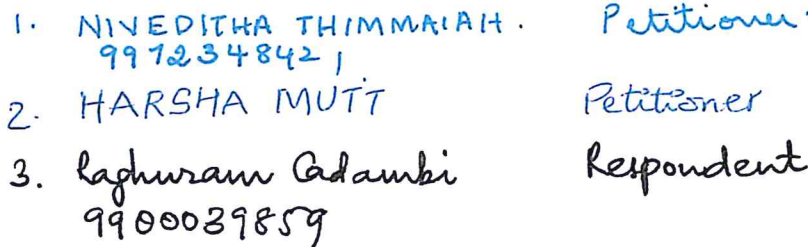 1. NIVEDITHA THIMMAIAH. Petitioner
9972348421
2. HARSHA MUTT Petitioner
3. Raghuram Cadambi Respondent
9900039859